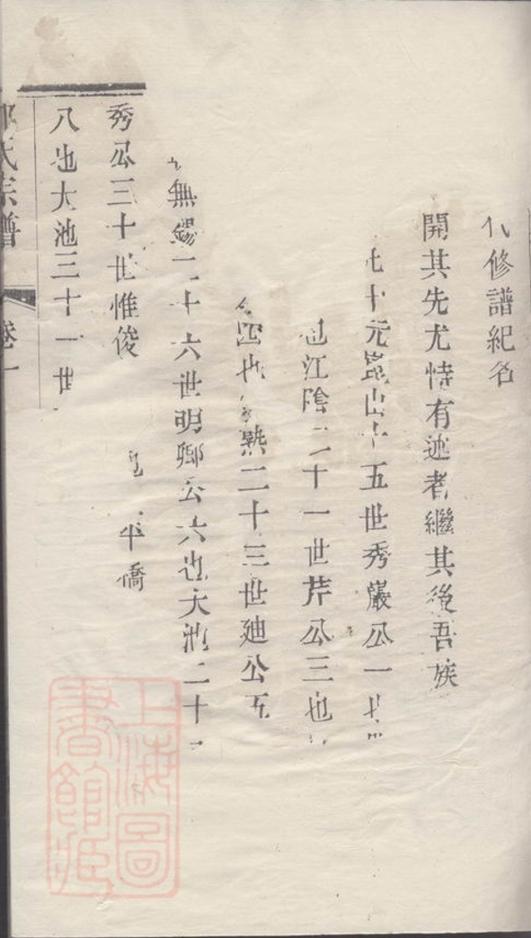 修譜紀名
開其先尤恃有述者繼其後吾族
十元崑山十五世秀巖公一
江陰二十一世芹公三也
四也 熟二十三世廸公五
無錫二十六世明卿公六也大池二十
平僑
秀公三十世惟俊
八也大池三十一世
氏宗譜 卷一
上海圖書館藏